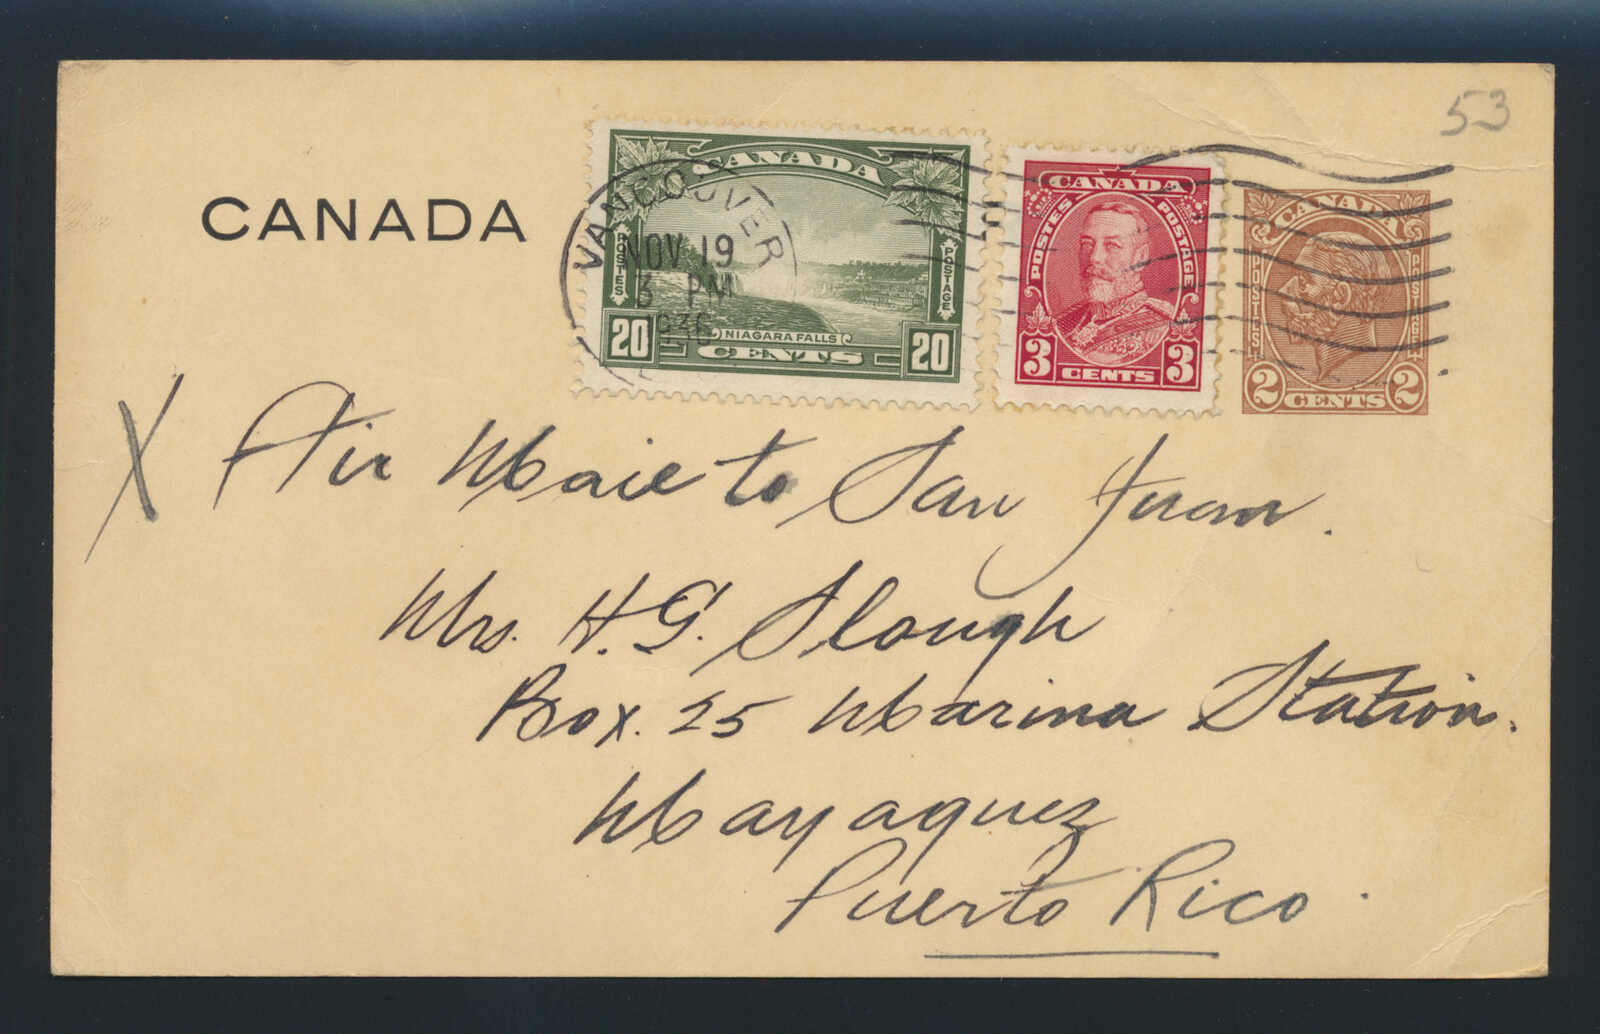 53
CANADA
CANADA
POSTES POSTAGE
20 NIAGARA FALLS 20
CENTS
VANCOUVER
NOV 19
3 PM
1936
CANADA
POSTES POSTAGE
3 CENTS 3
CANADA
POSTES POSTAGE
2 CENTS 2
X Air Mail to San Juan.
Mrs. H. G. Slough
Box. 25 Marina Station.
Mayaguez
Puerto Rico.